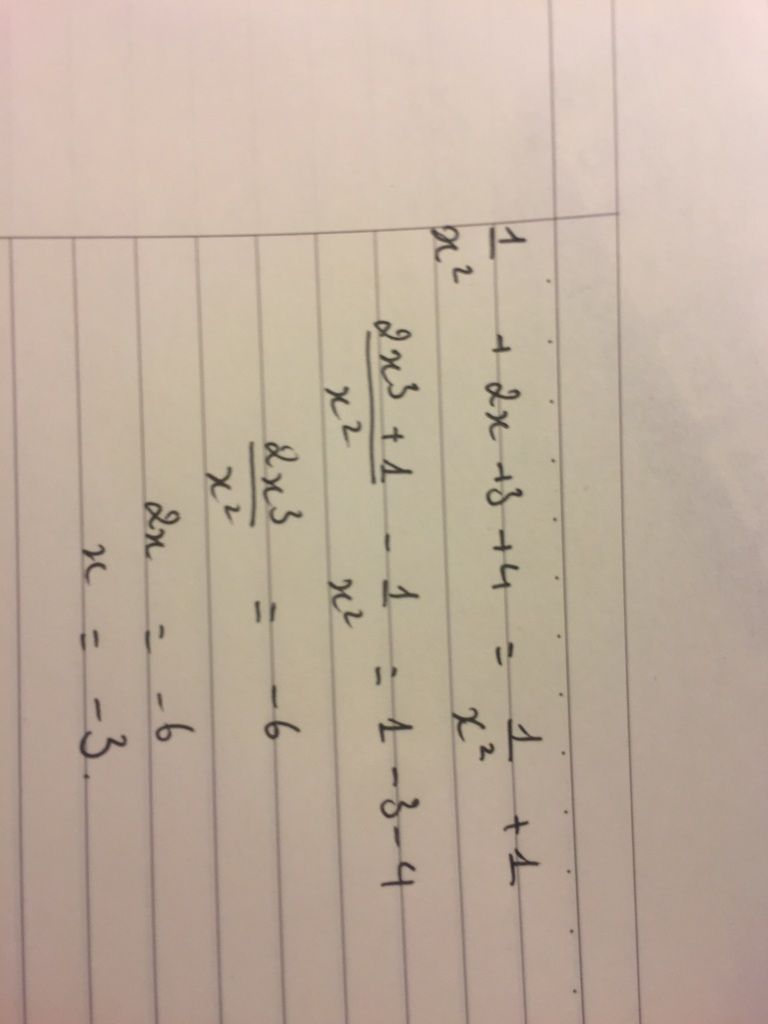 1/x² + 2x + 3 + 4 = 1/x² + 1
(2x³ + 1)/x² - 1/x² = 1 - 3 - 4
2x³/x² = -6
2x = -6
x = -3.